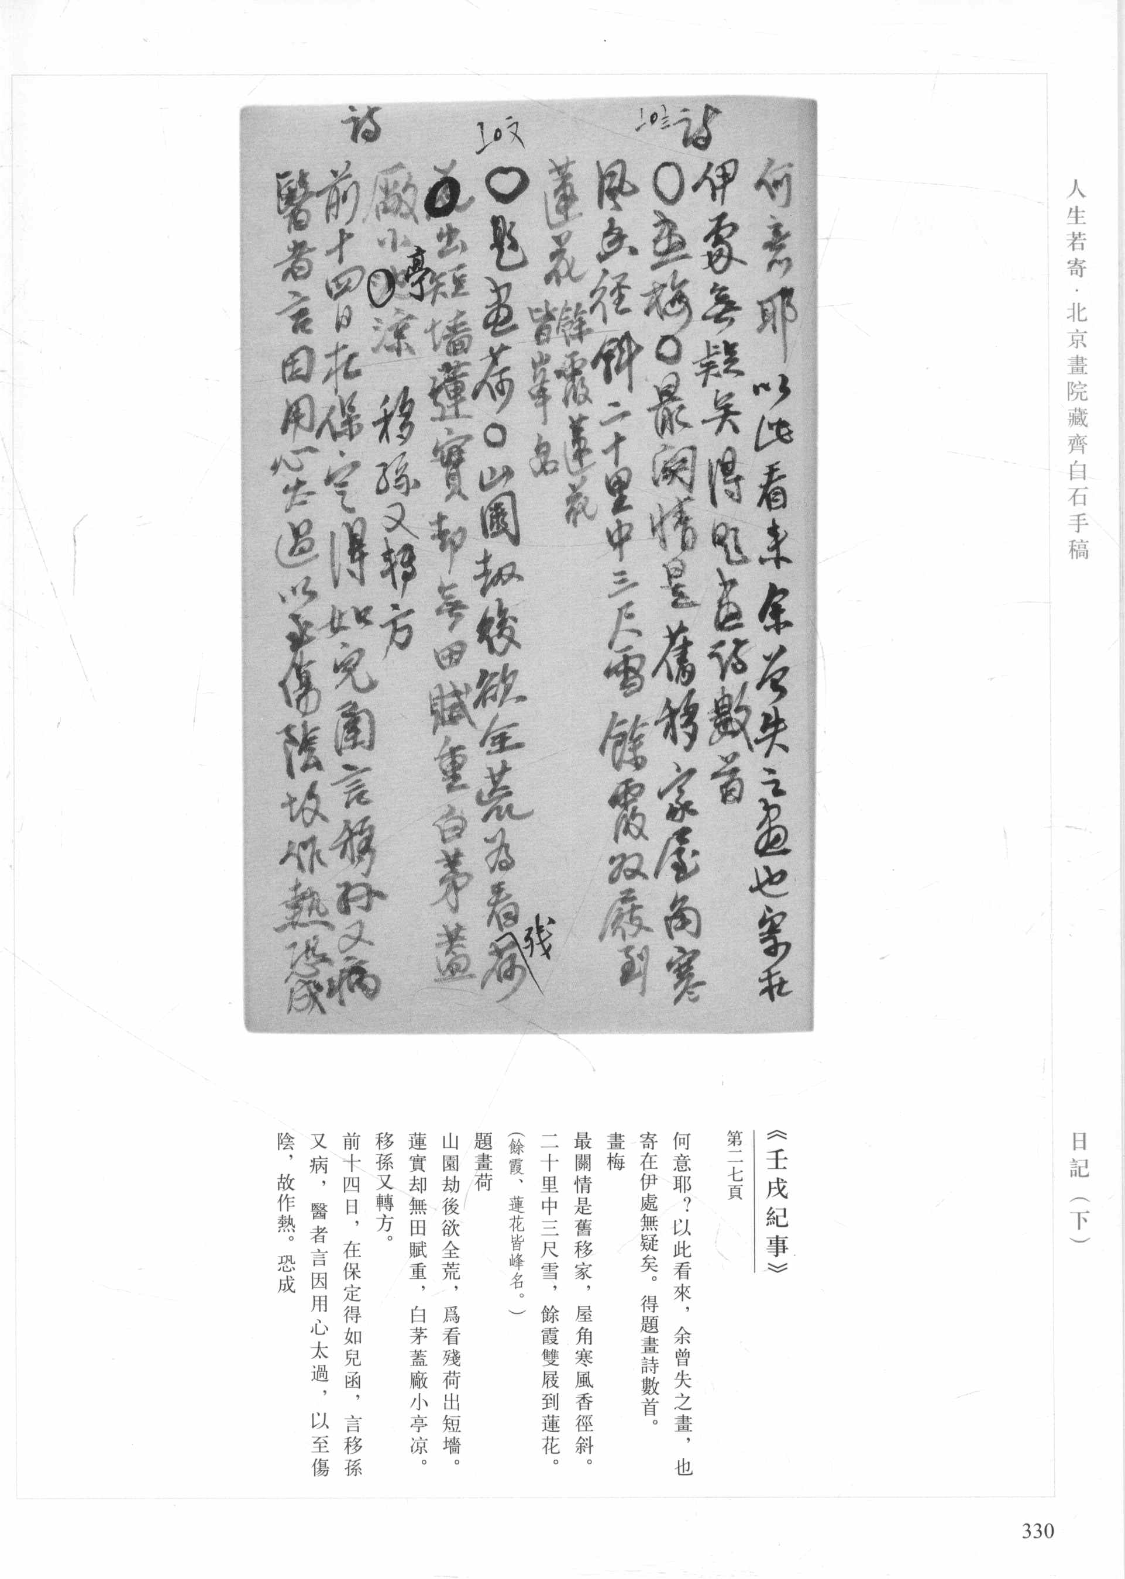 人生若寄·北京畫院藏齊白石手稿
日記（下）
詩
何意耶以此看来余曾失之畫也寄在
伊處無疑矣得題畫詩數首
畫梅 最関情是舊移家屋角寒
風香徑斜二十里中三尺雪餘霞双屐到
蓮花 餘霞蓮花
皆峯名
題畫荷 山園劫後欲全荒為看殘荷
出短墻蓮實却無田賦重白茅蓋
廠小亭涼 移孫又轉方
詩
前十四日在保定得如兒函言移孫又病
醫者言因用心太過以至傷陰故作熱恐成
《壬戌紀事》
第二七頁
何意耶？以此看來，余曾失之畫，也
寄在伊處無疑矣。得題畫詩數首。
畫梅
最關情是舊移家，屋角寒風香徑斜。
二十里中三尺雪，餘霞雙屐到蓮花。
（餘霞、蓮花皆峰名。）
題畫荷
山園劫後欲全荒，爲看殘荷出短墻。
蓮實却無田賦重，白茅蓋廠小亭凉。
移孫又轉方。
前十四日，在保定得如兒函，言移孫
又病，醫者言因用心太過，以至傷
陰，故作熱。恐成
330